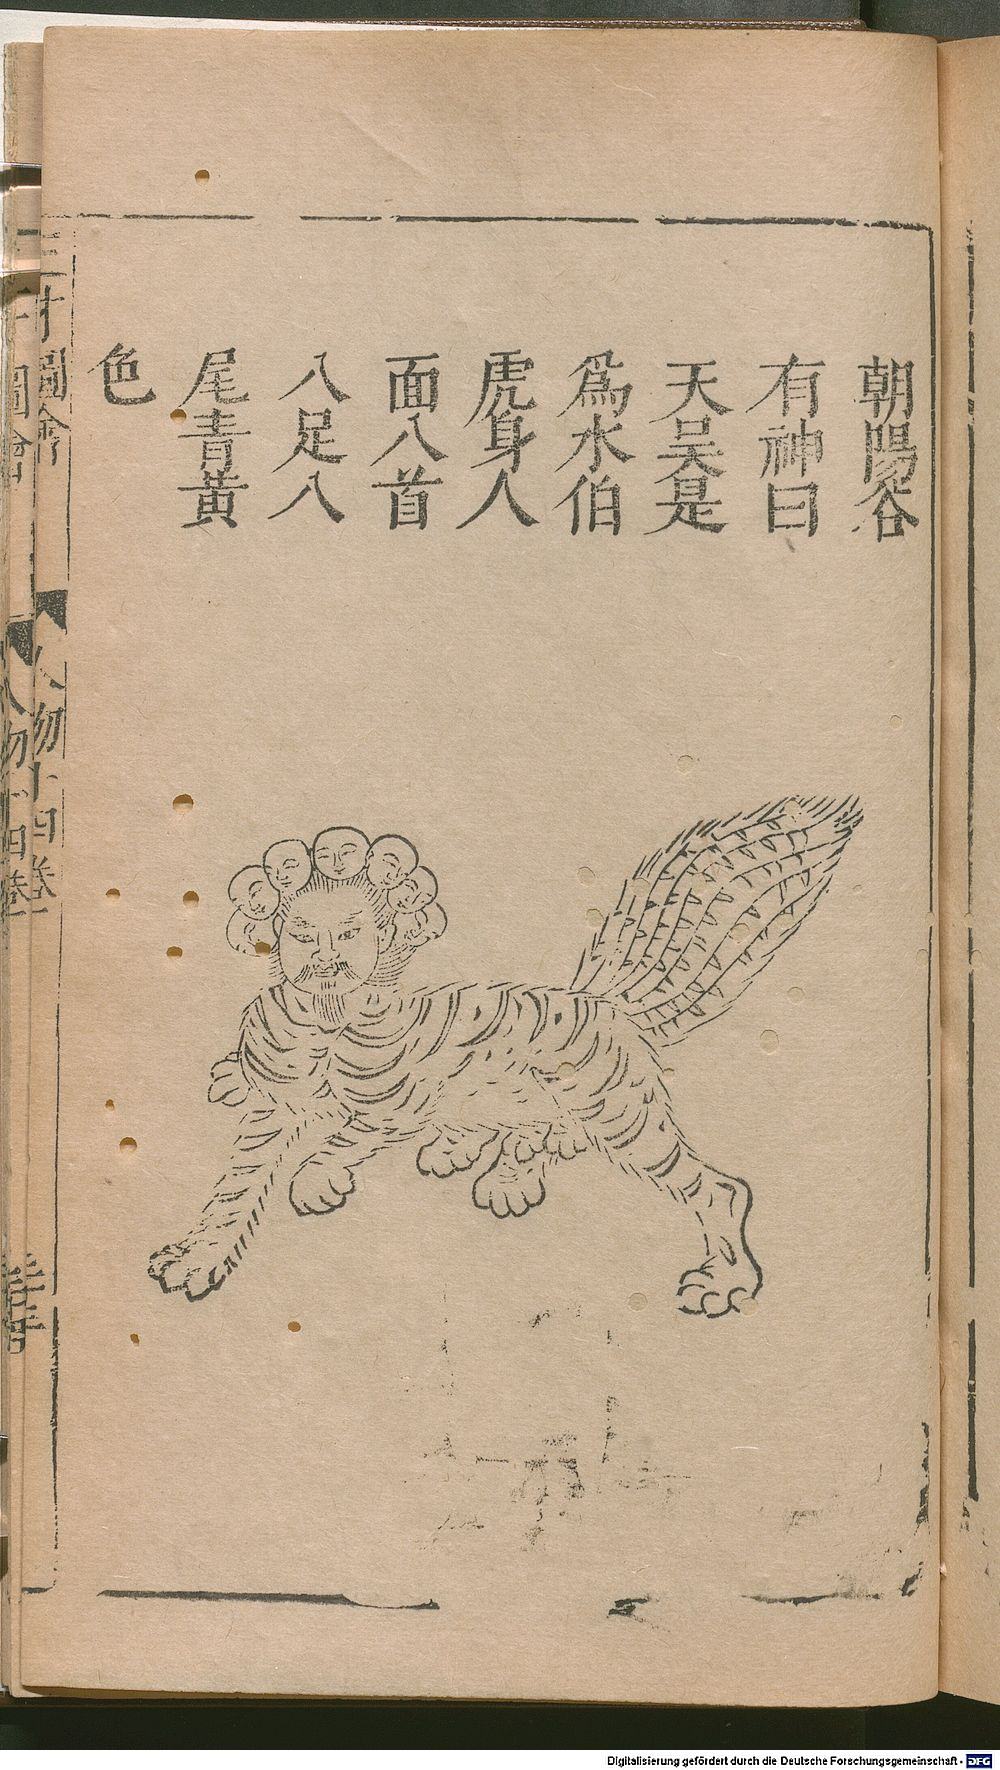 朝陽谷
有神曰
天吴是
為水伯
虎身人
面八首
八足八
尾青黃
色
圖會
人物十四卷
Digitalisierung gefördert durch die Deutsche Forschungsgemeinschaft - DFG